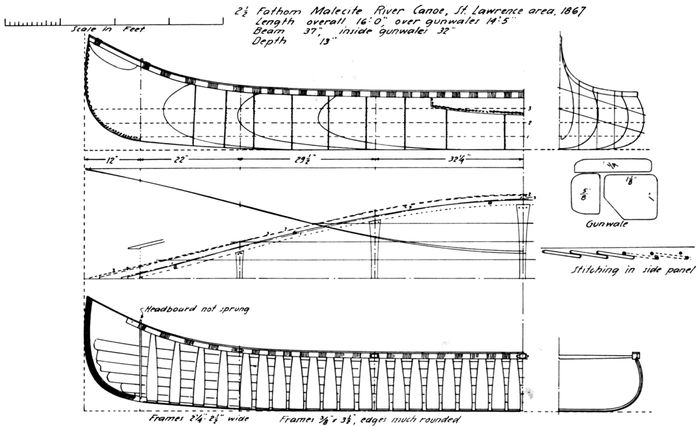 2 1/2 Fathom Malecite River Canoe, St. Lawrence area, 1867
Length overall 16'0", over gunwales 14'5"
Beam 37", inside gunwales 32"
Depth 13"
Scale in Feet
3
2
12" 22" 29 1/2" 32 1/4"
1/4
5/8 1 1/8 1
Gunwale
Stitching in side panel
Headboard not sprung
Frames 2 1/4"-2 1/2" wide Frames 3/8" x 3 1/2", edges much rounded